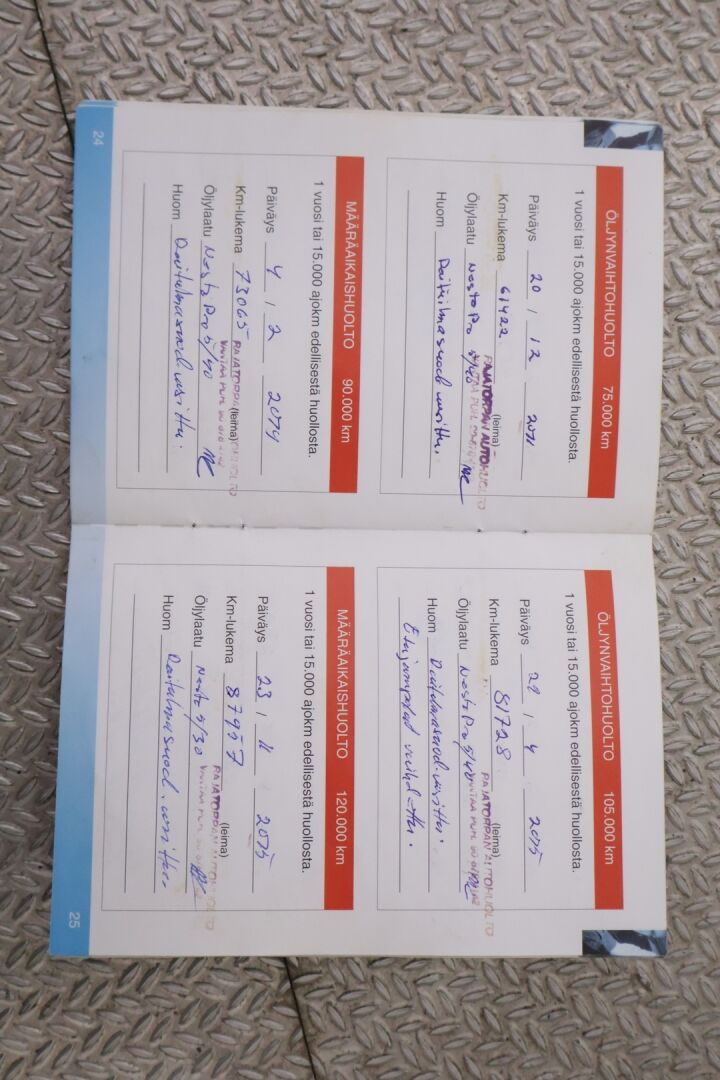 ÖLJYNVAIHTOHUOLTO 75.000 km
1 vuosi tai 15.000 ajokm edellisestä huollosta.
Päiväys 20 / 12
Km-lukema 61422 (leima)
PAJATORPAN AUTOHUOLTO
Öljylaatu Neste Pro
Huom
MÄÄRÄAIKAISHUOLTO 90.000 km
1 vuosi tai 15.000 ajokm edellisestä huollosta.
Päiväys 4 / 2 2014
Km-lukema 73065 (leima)
Öljylaatu Neste Pro 5/40
Huom
24
ÖLJYNVAIHTOHUOLTO 105.000 km
1 vuosi tai 15.000 ajokm edellisestä huollosta.
Päiväys 4 2015
Km-lukema 81728 (leima)
PAJATORPAN AUTOHUOLTO
Öljylaatu Neste Pro 5/40
Huom
MÄÄRÄAIKAISHUOLTO 120.000 km
1 vuosi tai 15.000 ajokm edellisestä huollosta.
Päiväys 23 / 11 2015
Km-lukema 87957 (leima)
PAJATORPAN AUTOHUOLTO
Öljylaatu Neste 5/30
Huom
25